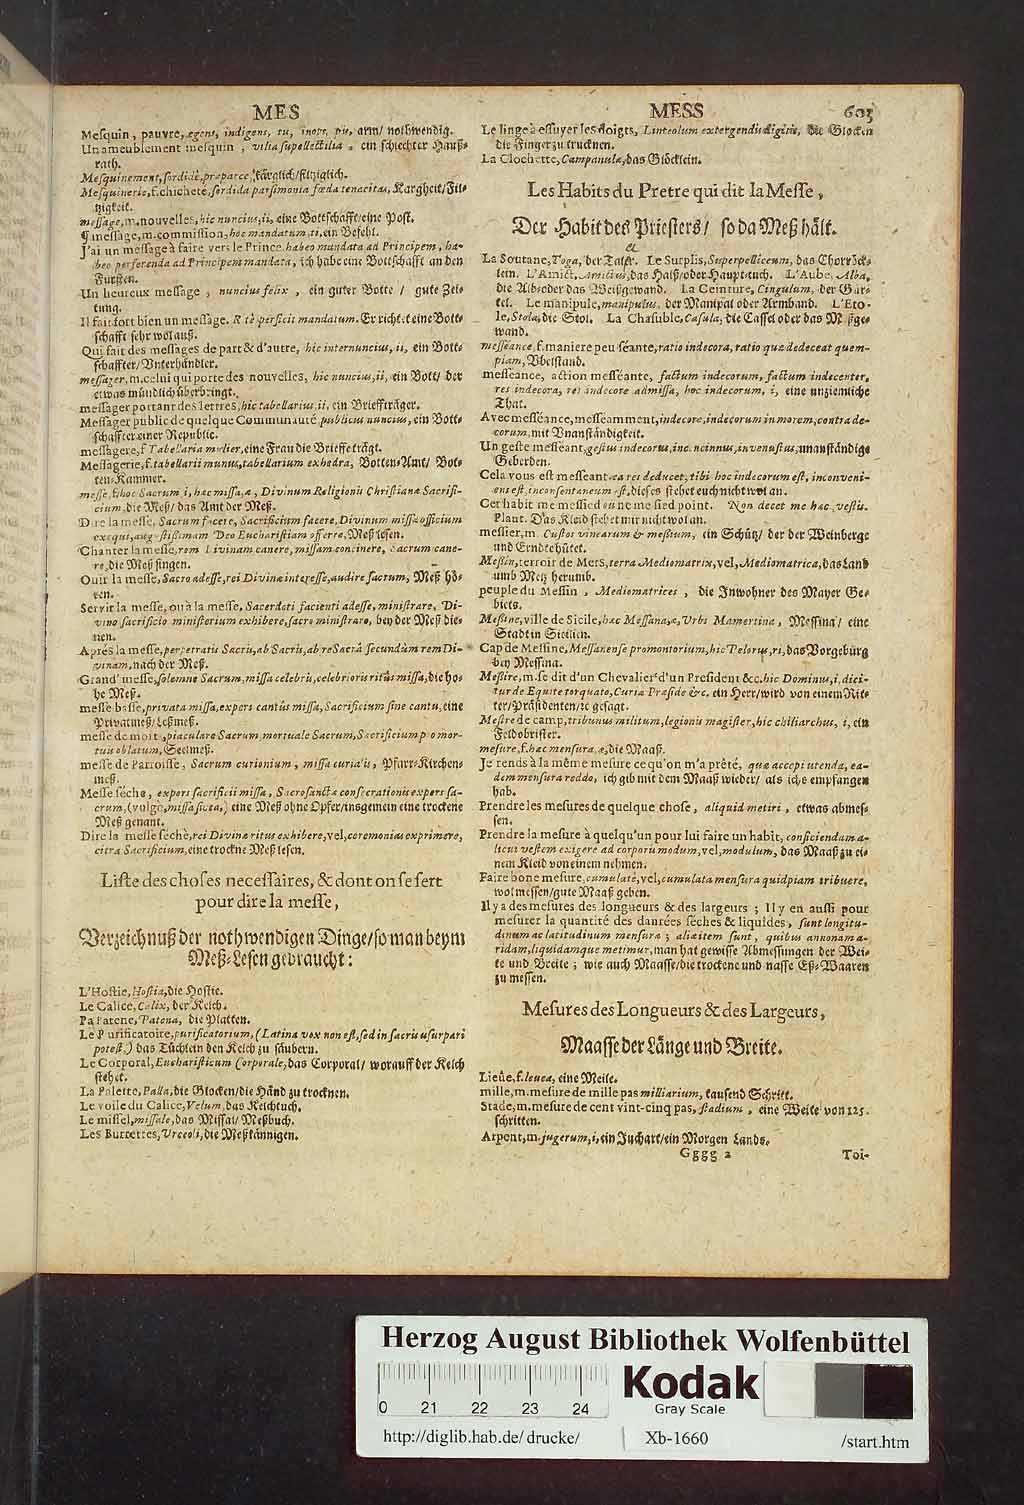 MES
Mesquin, pauvre, egens, indigens, tu, inops, pis, arm/ nothwendig.
Un ameublement mesquin, vilia supellectilia, ein schlechter Hauß-
rath.
Mesquinement, sordidè, præparcè, kärglich/filziglich.
Mesquinerie, f. chicheté, sordida parsimonia fœda tenacitas, Kargheit/Fil-
tzigkeit.
message, m. nouvelles, hic nuncius, ii, eine Bottschafft/eine Post.
¶ message, m. commission, hoc mandatum, ti, ein Befehl.
J'ai un message à faire vers le Prince. habeo mandata ad Principem, ha-
beo perferenda ad Principem mandata, ich habe eine Bottschafft an den
Fürsten.
Un heureux message, nuncius felix, ein guter Botte / gute Zei-
tung.
Il fait fort bien un message. Rectè perficit mandatum. Er richtet eine Bott-
schafft sehr wol auß.
Qui fait des messages de part & d'autre, hic internuncius, ii, ein Bott-
schaffter/ Unterhändler.
messager, m. celui qui porte des nouvelles, hic nuncius, ii, ein Bott/ der
etwas mündlich überbringt.
messager portant des lettres, hic tabellarius, ii, ein Briefftträger.
Messager public de quelque Communauté, publicus nuncius, ein Bott-
schaffter einer Republic.
messagere, f. Tabellaria mulier, eine Frau die Brieffe trägt.
Messagerie, f. tabellarii munus, tabellarium exhedra, Botten-Amt/ Bot-
ten-Kammer.
messe, f. hoc Sacrum i, hæc missa, æ, Divinum Religionis Christianæ Sacrifi-
cium, die Meß/ das Amt der Meß.
Dire la messe, Sacrum facere, Sacrificium facere, Divinum missæ officium
exequi, augustissimam Deo Eucharistiam offerre, Meß lesen.
Chanter la messe, rem Divinam canere, missam concinere, Sacrum cane-
re, die Meß singen.
Ouïr la messe, Sacro adesse, rei Divinæ interesse, audire sacrum, Meß hö-
ren.
Servir la messe, ou à la messe, Sacerdoti facienti adesse, ministrare, Di-
vino sacrificio ministerium exhibere, sacro ministrare, bey der Meß die-
nen.
Aprés la messe, perpetratis Sacris, ab Sacris, ab re Sacrâ secundùm rem Di-
vinam, nach der Meß.
Grand' messe, solemne Sacrum, missa celebris, celebrioris ritûs missa, die ho-
he Meß.
messe basse, privata missa, expers cantûs missa, Sacrificium sine cantu, eine
Privatmeß/Leßmeß.
messe de mort, piaculare Sacrum, mortuale Sacrum, Sacrificium pro mor-
tuis oblatum, Seelmeß.
messe de Parroisse, Sacrum curionium, missa curialis, Pfarr-Kirchen-
meß.
Messe séche, expers sacrificii missa, Sacrosanctæ consecrationis expers sa-
crum, (vulgo, missa sicca,) eine Meß ohne Opfer/insgemein eine trockene
Meß genant.
Dire la messe séche, rei Divinæ ritus exhibere, vel, ceremonias exprimere,
citra Sacrificium, eine trockne Meß lesen.
Liste des choses necessaires, & dont on se sert
pour dire la messe,
Verzeichnuß der nothwendigen Dinge/ so man beym
Meß-Lesen gebraucht:
L'Hostie, Hostia, die Hostie.
Le Calice, Calix, der Kelch.
Pa Patene, Patena, die Platten.
Le Purificatoire, purificatorium, (Latina vox non est, sed in sacris usurpari
potest,) das Tüchlein den Kelch zu säubern.
Le Corporal, Eucharisticum Corporale, das Corporal/ worauff der Kelch
stehet.
La Palette, Palla, die Glocken/die Händ zu trocknen.
Le voile du Calice, Velum, das Kelchtuch.
Le missel, missale, das Missal/ Meßbuch.
Les Burrettes, Urceoli, die Meßkännigen.
MESS
603
Le linge à essuyer les doigts, Linteolum extergendis digitis, die Glocken
die Finger zu trucknen.
La Clochette, Campanula, das Glöcklein.
Les Habits du Pretre qui dit la Messe,
Der Habit des Priesters/ so da Meß hält.
La Soutane, Toga, der Talar. Le Surplis, Superpelliceum, das Chorröck-
lein. L'Amict, Amictus, das Halß/oder Haupt-tuch. L'Aube, Alba,
die Alb oder das Weißgewand. La Ceinture, Cingulum, der Gür-
tel. Le manipule, manipulus, der Manipal oder Armband. L'Eto-
le, Stola, die Stol. La Chasuble, Casula, die Cassel oder das Meßge-
wand.
messéance, f. maniere peu séante, ratio indecora, ratio quæ dedeceat quem-
piam, Übelstand.
messéance, action messéante, factum indecorum, factum indecenter,
res indecora, res indecore admissa, hoc indecorum, i, eine unziemliche
That.
Avec messéance, messéamment, indecore, indecorum in morem, contra de-
corum, mit Unanständigkeit.
Un geste messéant, gestus indecorus, inconcinnus, invenustus, unanständige
Geberden.
Cela vous est messeant. ea res dedecet, tibi hoc indecorum est, inconveni-
ens est, inconsentaneum est, dieses stehet euch nicht wol an.
Cet habit me messied ou ne me sied point. Non decet me hæc vestis.
Plaut. Das Kleid stehet mir nicht wol an.
messier, m. Custos vinearum & messium, ein Schütz/ der der Weinberge
und Ernde hütet.
Messin, terroir de Mets, terra Mediomatrix, vel, Mediomatrica, das Land
umb Metz herumb.
peuple du Messin, Mediomatrices, die Inwohner des Mayer Ge-
biets.
Messine, ville de Sicile, hæc Messana, æ, Urbs Mamertina, Messina/ eine
Stadt in Sicilien.
Cap de Messine, Messanense promontorium, hic Pelorus, ri, das Vorgebürg
bey Messina.
Messire, m. se dit d'un Chevalier d'un President &c. hic Dominus, i, dici-
tur de Equite torquato, Curiæ Præside &c. ein Herr/ wird von einem Rit-
ter/Präsidenten/ꝛc gesagt.
Mestre de camp, tribunus militum, legionis magister, hic chiliarchus, i, ein
Feldobrister.
mesure, f. hæc mensura, æ, die Maaß.
Je rends à la même mesure ce qu'on m'a prêté, quæ accepi utenda, ea-
dem mensura reddo, ich gib mit dem Maaß wieder/ als ich empfangen
hab.
Prendre les mesures de quelque chose, aliquid metiri, etwas abmes-
sen.
Prendre la mesure à quelqu'un pour lui faire un habit, conficiendam a-
licui vestem exigere ad corporis modum, vel, modulum, das Maaß zu ei-
nem Kleid von einem nehmen.
Faire bone mesure, cumulatè, vel, cumulata mensura quidpiam tribuere,
wol messen/gute Maaß geben.
Il y a des mesures des longueurs & des largeurs ; Il y en aussi pour
mesurer la quantité des danrées séches & liquides, sunt longitu-
dinum ac latitudinum mensuræ; aliæ item sunt, quibus annonam a-
ridam, liquidamque metimur, man hat gewisse Abmessungen der Wei-
te und Breite ; wie auch Maasse/die trockene und nasse Eß-Waaren
zu messen.
Mesures des Longueurs & des Largeurs,
Maasse der Länge und Breite.
Lieüe, f. leuca, eine Meile.
mille, m. mesure de mille pas milliarium, tausend Schritt.
Stade, m. mesure de cent vint-cinq pas, stadium, eine Weite von 125.
schritten.
Arpent, m. jugerum, i, ein Juchart/ein Morgen Lands.
Gggg 2
Toi-
Herzog August Bibliothek Wolfenbüttel
0 21 22 23 24
Kodak
Gray Scale
http://diglib.hab.de/drucke/ Xb-1660 /start.htm